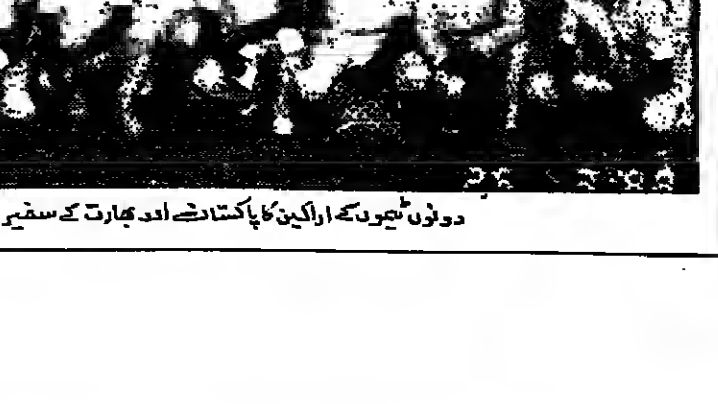 26 3 88
دونوں ٹیموں کے اراکین کا پاکستان اور بھارت کے سفیر